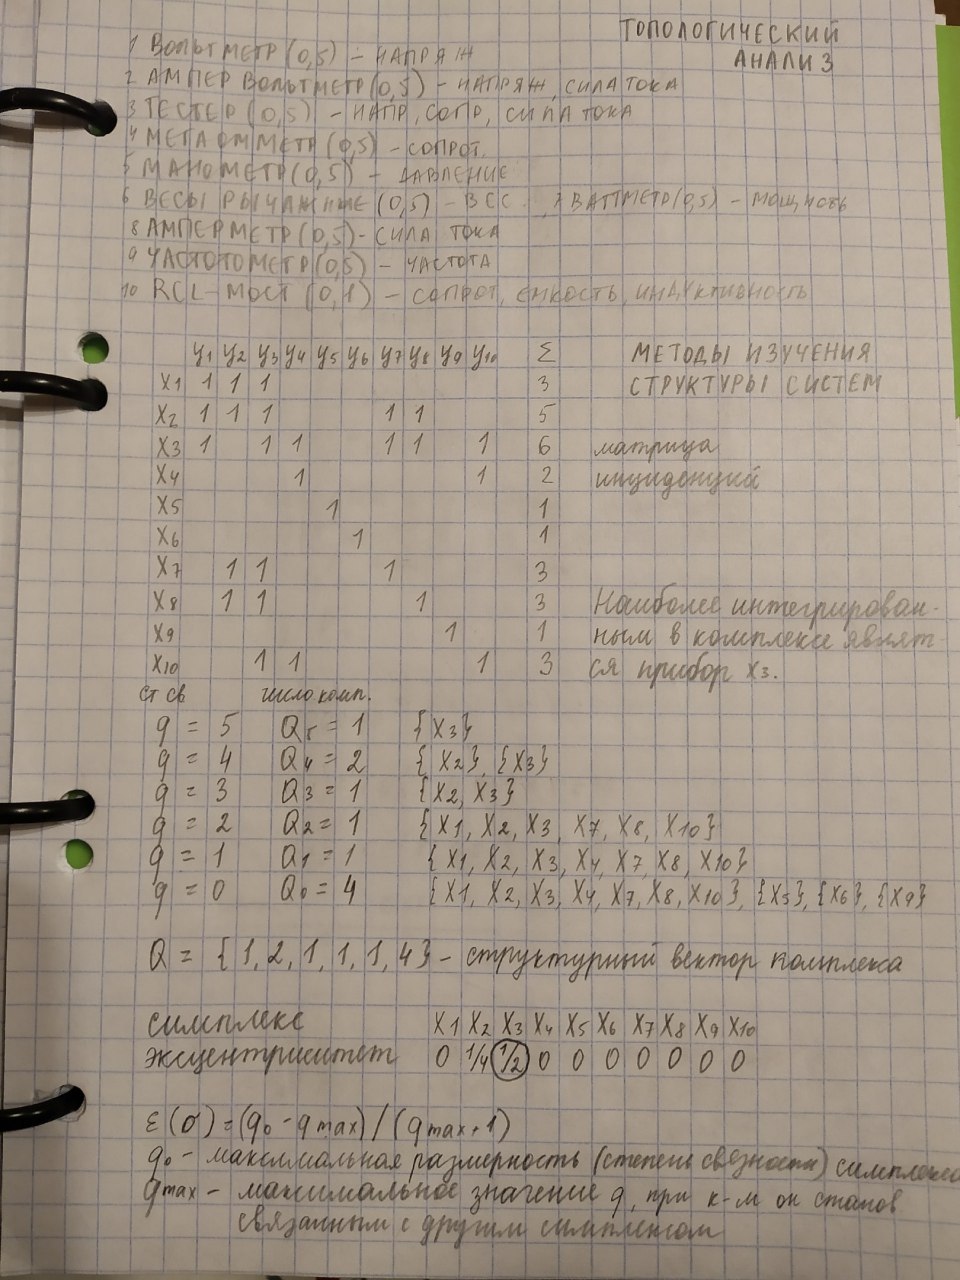 ТОПОЛОГИЧЕСКИЙ
АНАЛИЗ
1 ВОЛЬТМЕТР (0,5) – НАПРЯЖ
2 АМПЕРВОЛЬТМЕТР (0,5) – НАПРЯЖ, СИЛА ТОКА
3 ТЕСТЕР (0,5) – НАПР, СОПР, СИЛА ТОКА
4 МЕГАОММЕТР (0,5) – СОПРОТ.
5 МАНОМЕТР (0,5) – ДАВЛЕНИЕ
6 ВЕСЫ РЫЧАЖНЫЕ (0,5) – ВЕС, 7 ВАТТМЕТР (0,5) – МОЩНОСТЬ
8 АМПЕРМЕТР (0,5) – СИЛА ТОКА
9 ЧАСТОТОМЕТР (0,5) – ЧАСТОТА
10 RCL – МОСТ (0,1) – СОПРОТ, ЕМКОСТЬ, ИНДУКТИВНОСТЬ
y1 y2 y3 y4 y5 y6 y7 y8 y9 y10 Σ
МЕТОДЫ ИЗУЧЕНИЯ
СТРУКТУРЫ СИСТЕМ
x1 1 1 1 3
x2 1 1 1 1 1 5
x3 1 1 1 1 1 1 6
матрица
инциденций
x4 1 1 2
x5 1 1
x6 1 1
x7 1 1 1 3
x8 1 1 1 3
x9 1 1
x10 1 1 1 3
Наиболее интегрирован-
ным в комплексе являет-
ся прибор x3.
ст св число комп.
q = 5 Q5 = 1 {x3}
q = 4 Q4 = 2 {x2}, {x3}
q = 3 Q3 = 1 {x2, x3}
q = 2 Q2 = 1 {x1, x2, x3, x7, x8, x10}
q = 1 Q1 = 1 {x1, x2, x3, x4, x7, x8, x10}
q = 0 Q0 = 4 {x1, x2, x3, x4, x7, x8, x10}, {x5}, {x6}, {x9}
Q = {1, 2, 1, 1, 1, 4} – структурный вектор комплекса
симплекс x1 x2 x3 x4 x5 x6 x7 x8 x9 x10
эксцентриситет 0 1/4 1/2 0 0 0 0 0 0 0
ε(σ) = (q0 – qmax) / (qmax + 1)
q0 – максимальная размерность (степень связности) симплекса
qmax – максимальное значение q, при к-м он станов
связанным с другим симплексом